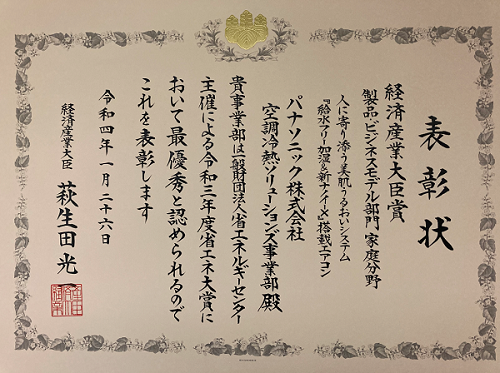 表彰状
経済産業大臣賞
製品・ビジネスモデル部門 家庭分野
人に寄り添う美肌うるおいシステム
『給水フリー加湿&新ナノイーX』搭載エアコン
パナソニック株式会社
空調冷熱ソリューションズ事業部 殿
貴事業部は一般財団法人省エネルギーセンター
主催による令和三年度省エネ大賞に
おいて最優秀と認められるので
これを表彰します
令和四年一月二十六日
経済産業大臣 萩生田光一